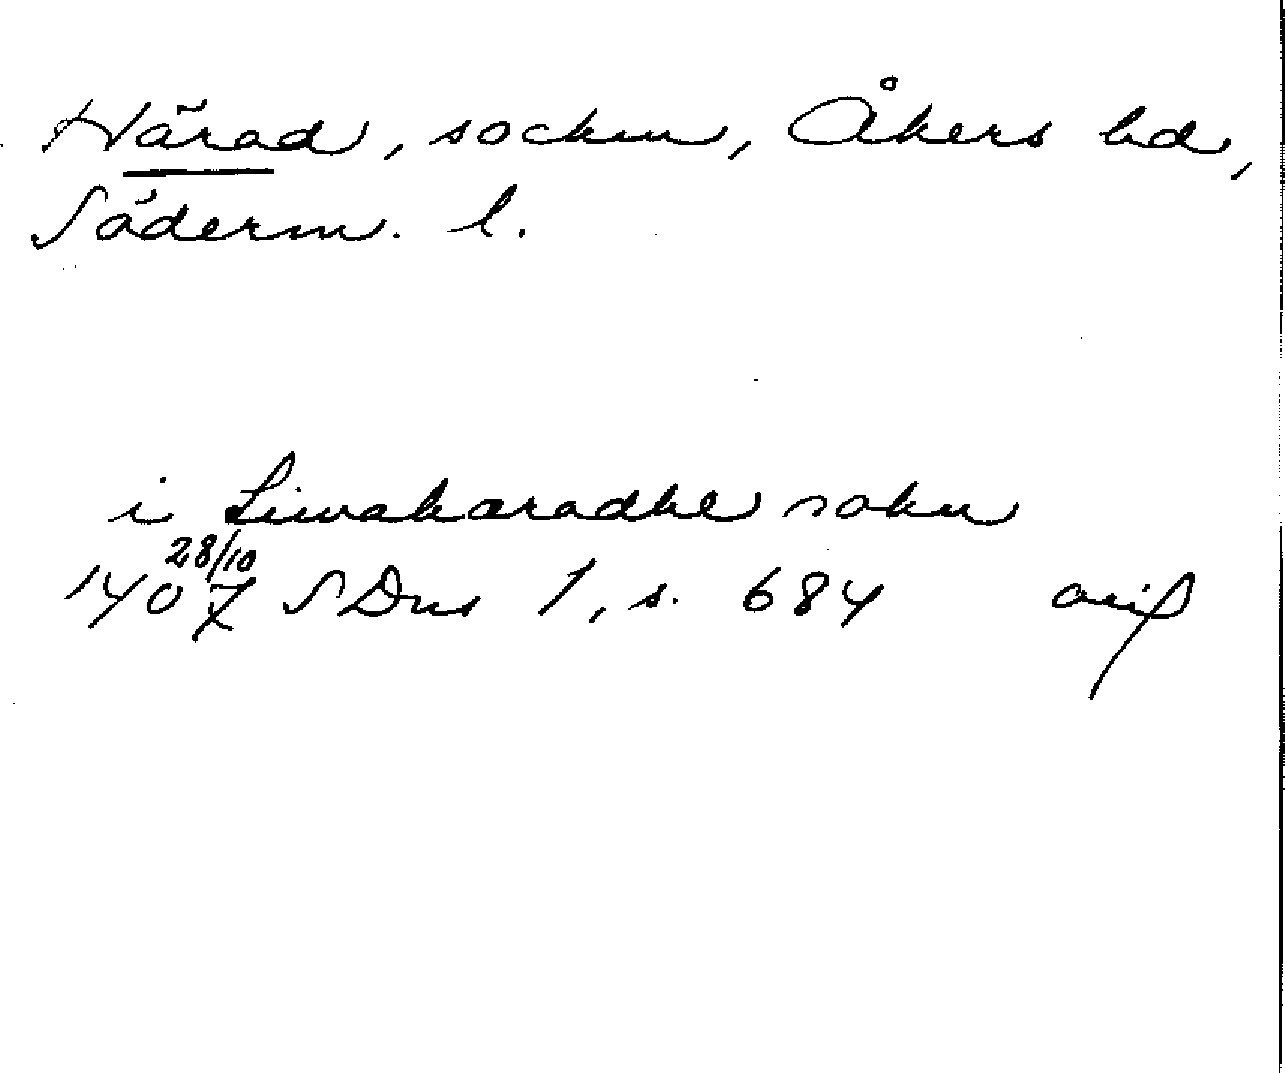 Härad, socken, Åkers hd,
Söderm. l.
i Liwaharadhe sokn
28/10
1407 SDns 1, s. 684 avs